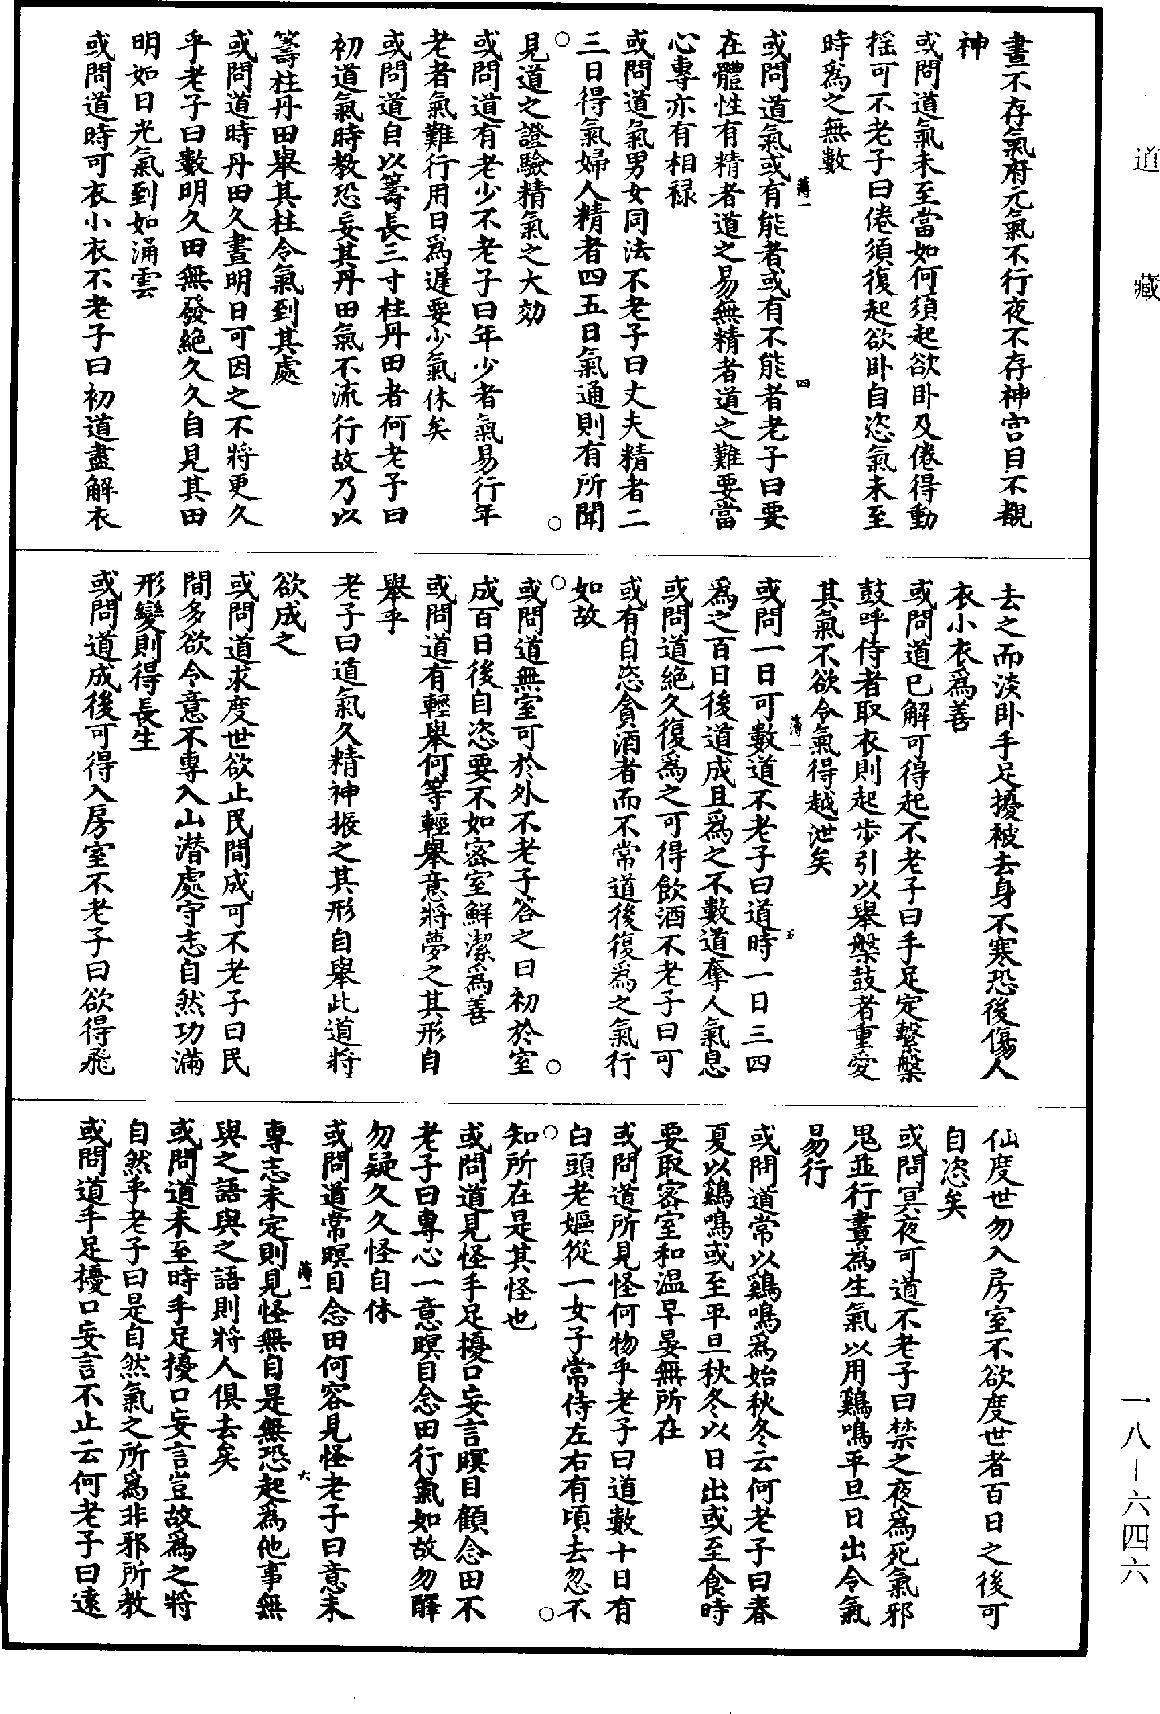 道藏
晝不存氣府元氣不行夜不存神宮目不覩
神
或問道氣未至當如何須起欲卧及倦得動
揺可不老子曰倦須復起欲卧自恣氣未至
時爲之無數
或問道氣或有能者或有不能者老子曰要
在體性有精者道之易無精者道之難要當
心專亦有相祿
或問道氣男女同法不老子曰丈夫精者二
三日得氣婦人精者四五日氣通則有所聞
見道之證驗精氣之大効
或問道有老少不老子曰年少者氣易行年
老者氣難行用日爲遲要少氣休矣
或問道自以籌長三寸柱丹田者何老子曰
初道氣時教恐妄其丹田氣不流行故乃以
籌柱丹田舉其柱令氣到其處
或問道時丹田久晝明日可因之不將更久
乎老子曰數明久田無發絕久久自見其田
明如日光氣到如涌雲
或問道時可衣小衣不老子曰初道盡解衣
薄一
四
去之而淡卧手足擾被去身不寒恐後傷人
衣小衣爲善
或問道已解可得起不老子曰手足定繫槃
鼓呼侍者取衣則起步引以舉槃鼓者重愛
其氣不欲令氣得越泄矣
或問一日可數道不老子曰道時一日三四
爲之百日後道成且爲之不數道奪人氣息
或問道絕久復爲之可得飲酒不老子曰可
或有自恣貪酒者而不常道後復爲之氣行
如故
或問道無室可於外不老子答之曰初於室
成百日後自恣要不如密室鮮潔爲善
或問道有輕舉何等輕舉意將夢之其形自
舉乎
老子曰道氣久精神振之其形自舉此道將
欲成之
或問道求度世欲止民間成可不老子曰民
間多欲令意不專入山潜處守志自然功滿
形變則得長生
或問道成後可得入房室不老子曰欲得飛
薄一
五
仙度世勿入房室不欲度世者百日之後可
自恣矣
或問冥夜可道不老子曰禁之夜爲死氣邪
鬼並行晝爲生氣以用鷄鳴平旦日出令氣
易行
或問道常以鷄鳴爲始秋冬云何老子曰春
夏以鷄鳴或至平旦秋冬以日出或至食時
要取密室和温早晏無所在
或問道所見怪何物乎老子曰道數十日有
白頭老嫗從一女子常侍左右有頃去忽不
知所在是其怪也
或問道見怪手足擾口妄言瞑目顧念田不
老子曰專心一意瞑目念田行氣如故勿驛
勿疑久久怪自休
或問道常瞑目念田何容見怪老子曰意未
專志未定則見怪無自是無恐起爲他事無
與之語與之語則將人俱去矣
或問道未至時手足擾口妄言豈故爲之將
自然乎老子曰是自然氣之所爲非邪所教
或問道手足擾口妄言不止云何老子曰遠
薄一
六
一八－六四六